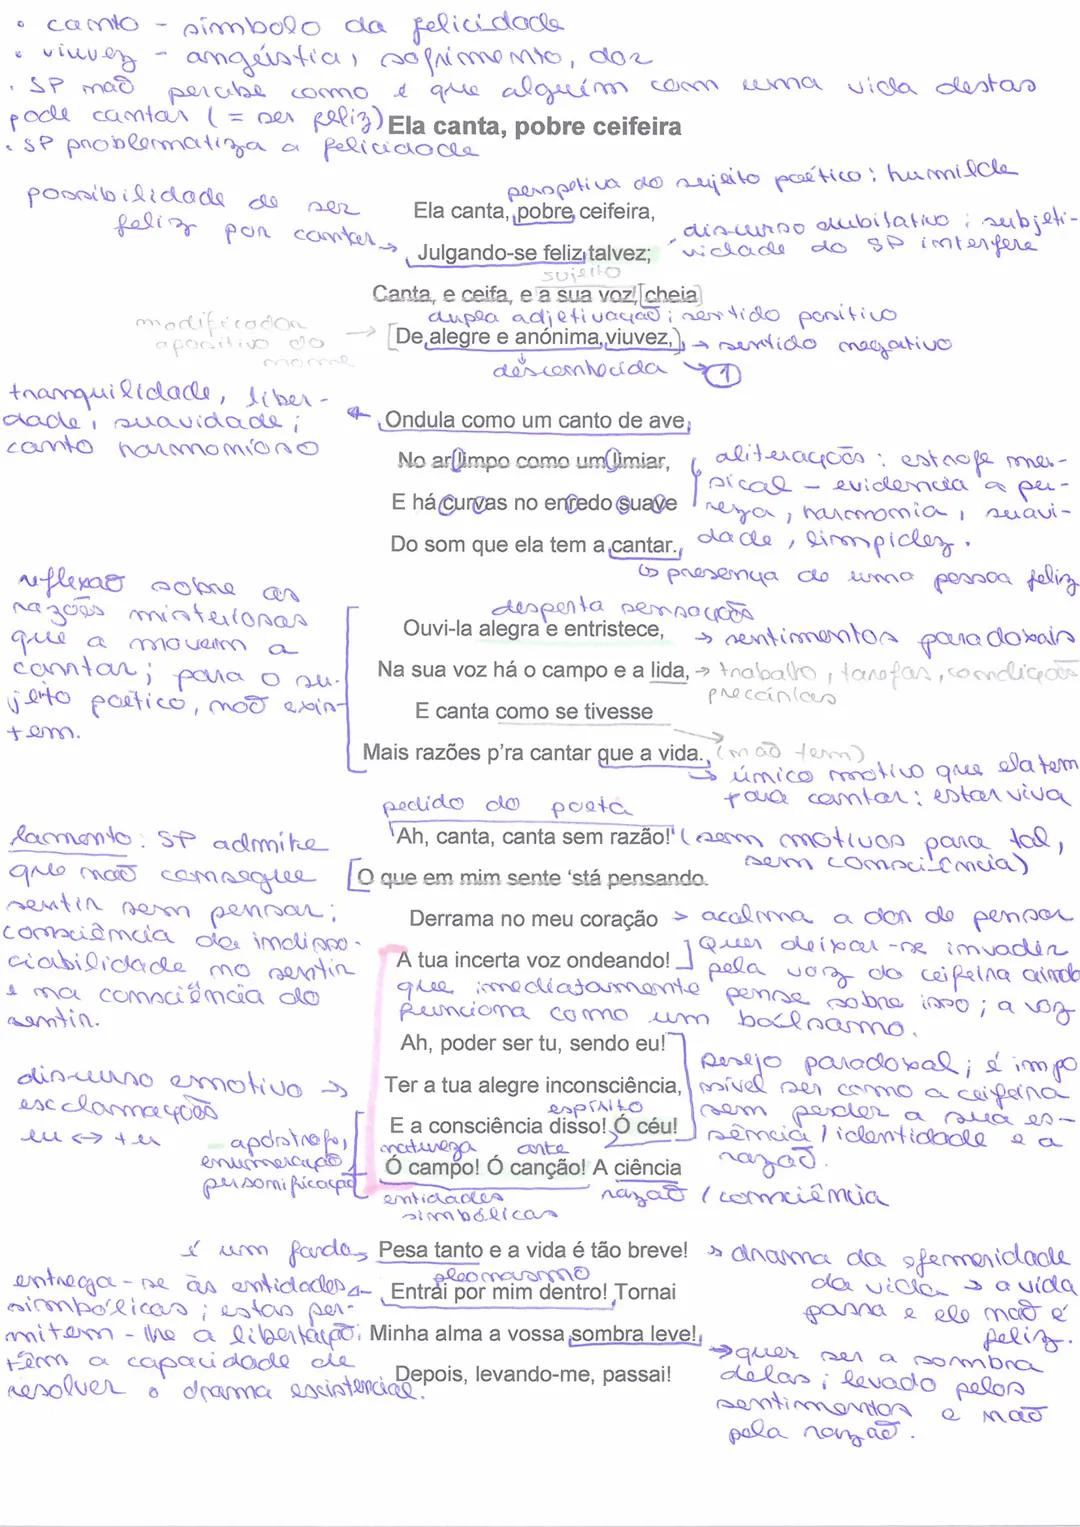 • canto - símbolo da felicidade
• viuvez - angústia, sofrimento, dor
• SP não percebe como é que alguém com uma vida destas
pode cantar (= ser feliz)
Ela canta, pobre ceifeira
• SP problematiza a felicidade
perspetiva do sujeito poético: humilde
possibilidade de ser
feliz por cantar
Ela canta, pobre ceifeira,
discurso dubitativo; subjeti-
vidade do SP interfere
Julgando-se feliz talvez;
sujeito
Canta, e ceifa, e a sua voz, [cheia]
dupla adjetivação; sentido positivo
modificador
apositivo do
nome
[De alegre e anónima viuvez,] → sentido negativo
desconhecida → 1
tranquilidade, liber-
dade, suavidade;
canto harmonioso
Ondula como um canto de ave,
No ar limpo como um limiar,
E há curvas no enredo suave
Do som que ela tem a cantar.
aliterações: estrofe mu-
sical - evidencia a pu-
reza, harmonia, suavi-
dade, limpidez.
↳ presença de uma pessoa feliz
reflexão sobre as
razões misteriosas
que a movem a
cantar; para o su-
jeito poético, não exis-
tem.
desperta sensações
Ouvi-la alegra e entristece, → sentimentos paradoxais
Na sua voz há o campo e a lida, → trabalho, tarefas, condições
precárias
E canta como se tivesse
Mais razões p'ra cantar que a vida. (não tem)
→ único motivo que ela tem
para cantar: estar viva
pedido do poeta
Ah, canta, canta sem razão! (sem motivos para tal,
sem consciência)
lamento: SP admite
que não consegue
sentir sem pensar;
consciência da indisso-
ciabilidade no sentir
e na consciência do
sentir.
[O que em mim sente 'stá pensando.
Derrama no meu coração → acalma a dor de pensar
A tua incerta voz ondeando!
Quer deixar-se invadir
pela voz da ceifeira ainda
que imediatamente pense sobre isso; a voz
funciona como um bálsamo.
Ah, poder ser tu, sendo eu!
Ter a tua alegre inconsciência,
desejo paradoxal; é impo
ssível ser como a ceifeira
sem perder a sua es-
sência / identidade e a
razão.
discurso emotivo →
exclamações
eu ↔ tu
espírito
E a consciência disso! Ó céu!
apóstrofe,
enumeração,
personificação
natureza arte
Ó campo! Ó canção! A ciência
entidades
simbólicas
razão / consciência
é um fardo
Pesa tanto e a vida é tão breve! → drama da efemeridade
da vida → a vida
passa e ele não é
feliz.
pleonasmo
entrega-se às entidades
simbólicas; estas per-
mitem-lhe a libertação;
têm a capacidade de
resolver o drama existencial.
Entrai por mim dentro! Tornai
Minha alma a vossa sombra leve!
Depois, levando-me, passai!
→ quer ser a sombra
delas; levado pelos
sentimentos e não
pela razão.